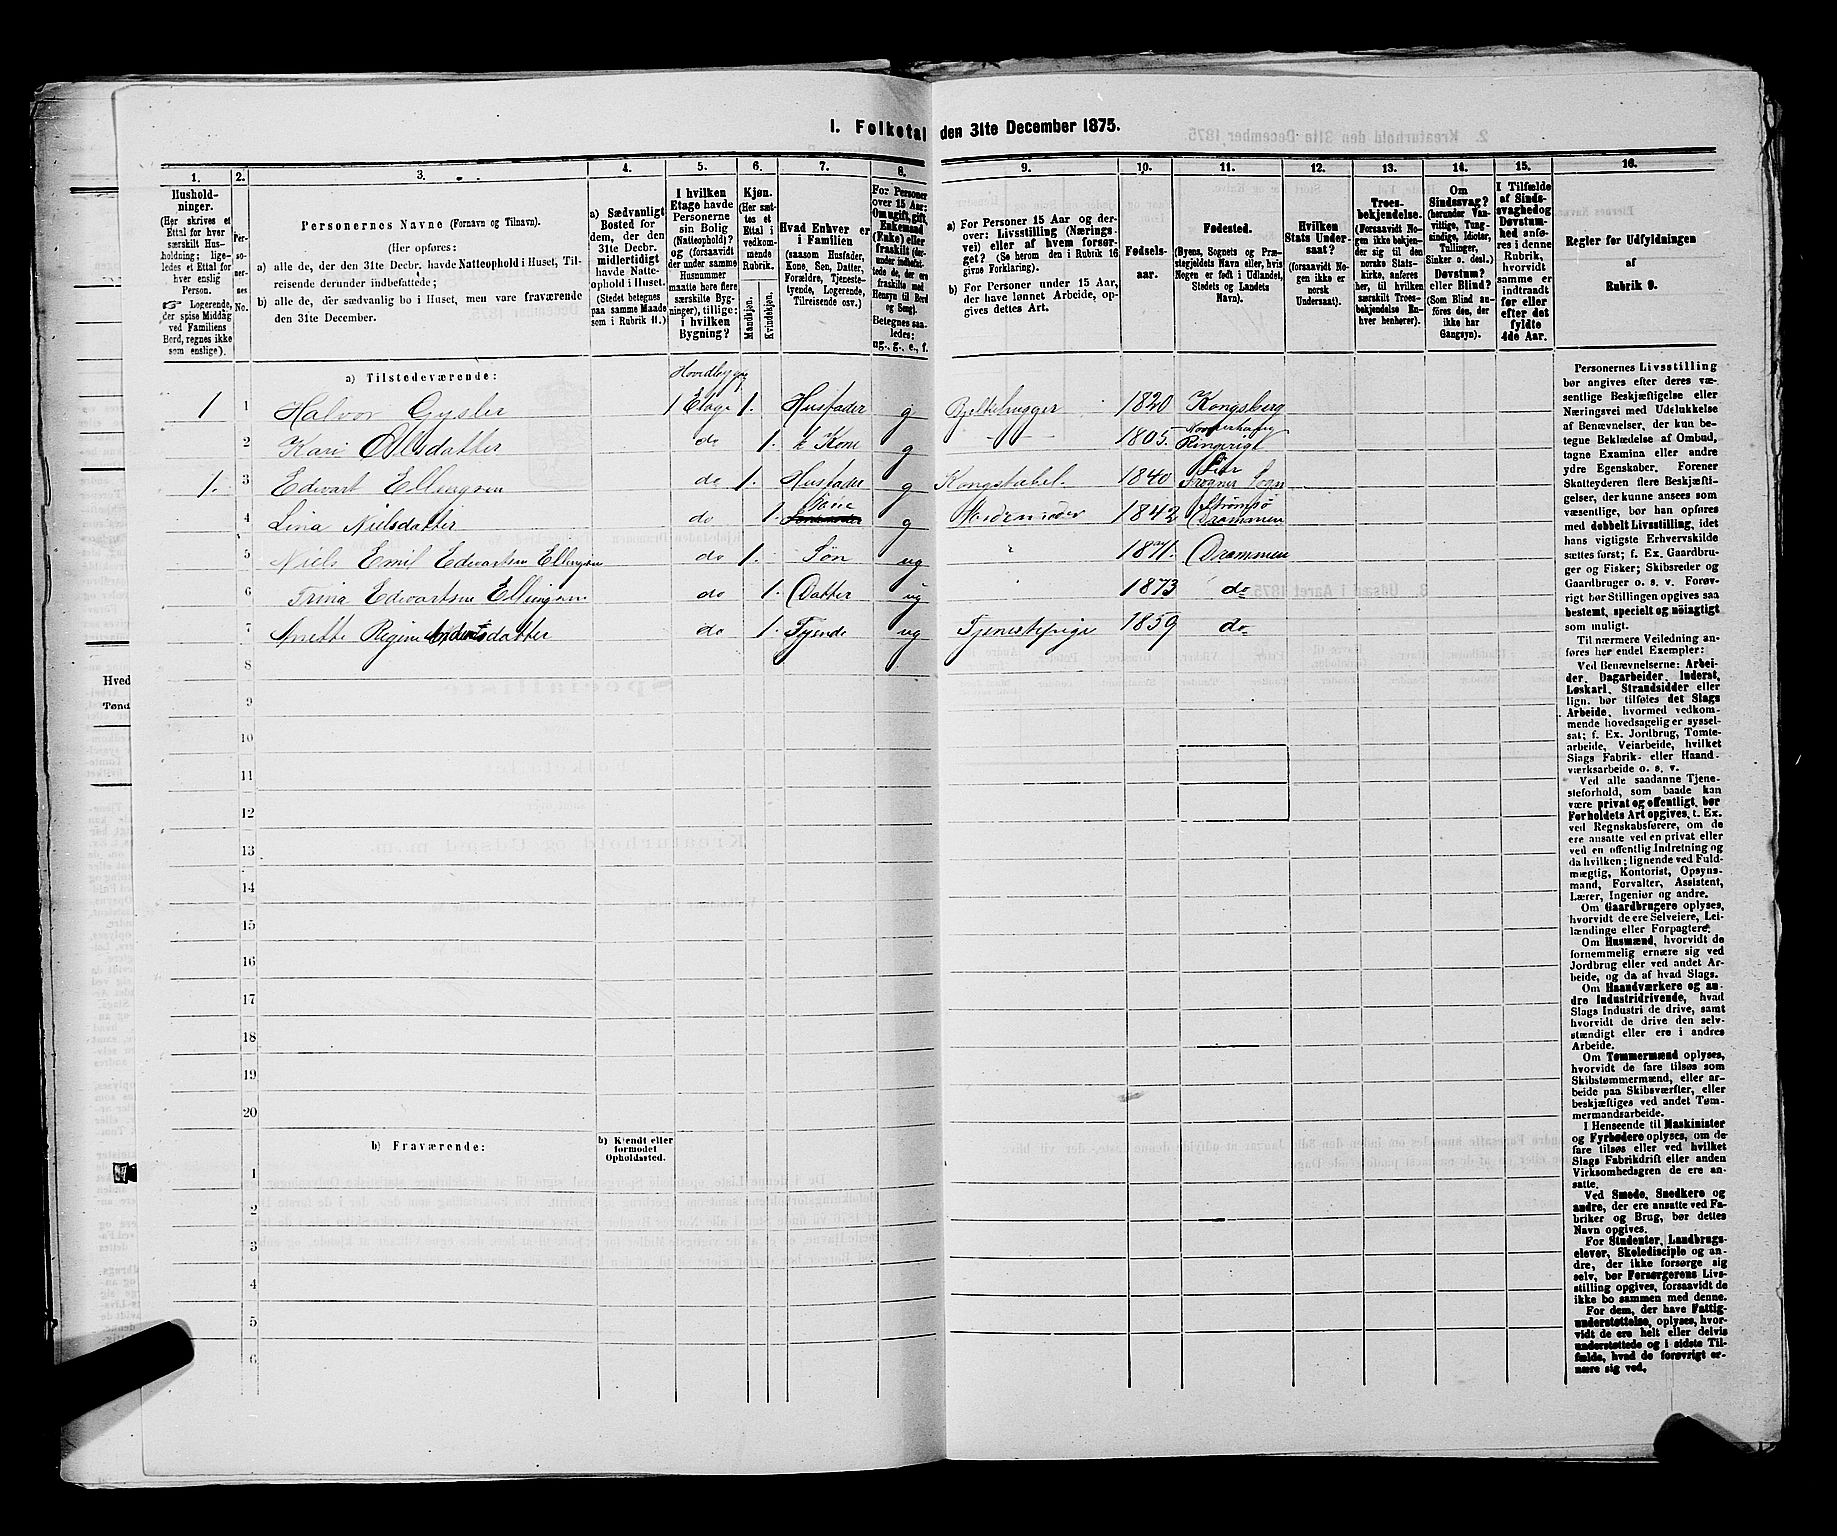 1. Folketal den 31te December 1875.
1. 2. 3. 4. 5. 6. 7. 8. 9. 10. 11. 12. 13. 14. 15. 16.
Husholdninger.
(Her skrives et
Ettal for hver
særskilt Hus-
holdning; lige-
ledes et Ettal for
hver enslig
Person.
Logerende,
der spise Middag
ved Familiens
Bord, regnes ikke
som enslige).
Per-
so-
ner-
nes
No.
Personernes Navne (Fornavn og Tilnavn).
(Her opføres:
a) alle de, der den 31te Decbr. havde Natteophold i Huset, Til-
reisende derunder indbefattede;
b) alle de, der sædvanlig bo i Huset, men vare fraværende
den 31te December.
a) Sædvanligt
Bosted for
dem, der den
31te Decbr.
midlertidigt
havde Natte-
ophold i Huset.
(Stedet betegnes
paa samme Maade
som i Rubrik 11.)
I hvilken
Etage havde
Personerne
sin Bolig
(Natteophold)?
(forsaavidt
der under samme
Husnummer
maatte høre flere
særskilte Byg-
ninger), tillige:
i hvilken
Bygning?
Kjøn.
(Her sæt-
tes et
Ettal i
vedkom-
mende
Rubrik.
Mandkjøn.
Kvindekjøn.
Hvad Enhver er
i Familien
(saasom Husfader,
Kone, Søn, Datter,
Forældre, Tjeneste-
tyende, Logerende,
Tilreisende osv.)
For Personer
over 15 Aar:
Om ugift, gift,
Enkemand
(Enke) eller
fraskilt
Betegnes saa-
ledes:
ug., g., e., f.
a) For Personer 15 Aar og der-
over: Livsstilling (Nærings-
vei) eller af hvem forsør-
get? (Se herom den i Rubrik 16
givne Forklaring).
b) For Personer under 15 Aar,
der have lønnet Arbeide, op-
gives dettes Art.
Fødsels-
aar.
Fødested.
(Byens, Sognets og Præ-
stegjeldets Navn eller, hvis
Nogen er født i Udlandet,
Stedets og Landets
Navn).
Hvilken
Stats Under-
saat?
(forsaavidt No-
gen ikke er
norsk
Undersaat).
Troes-
bekjendelse.
(Forsaavidt No-
gen ikke bekjen-
der sig til den
norske Stats-
kirke, anføres
her, til hvilken
særskilt Troes-
bekjendelse En-
hver henhører).
Om
Sindssvag?
(herunder Van-
vittige, Tung-
sindige, Idioter,
Tullinger,
Sinker o. desl.)
Døvstum?
eller Blind?
(Som Blind an-
føres den, der
ikke har
Gangsyn).
I Tilfælde
af Sinds-
svaghed og
Døvstum-
hed anfø-
res i denne
Rubrik,
hvorvidt
samme er
indtraadt
før eller
efter det
fyldte
4de Aar.
Regler for Udfyldningen
af
Rubrik 9.
a) Tilstedeværende:
1 1 Halvor Gysler 1 Etage 1. Husfader g 1820 Kongsberg
2 Kari Olsdatter do 1. Kone g 1805. Ringerige
1. 3 Edvart Ellingsen do 1. Husfader g Kongstabel. 1840 Lier Frogner Sogn
4 Lina Nielsdatter do 1. Kone g 1842 Strømsø Drammen
5 Niels Emil Edvartsen Ellingsen do 1. Søn ug 1871. Drammen
6 Trina Edvartsen Ellingsen do 1. Datter ug 1873 do
7 Anette Regine do 1. Tyende ug Tjenestepige 1859 do
8
9
10
11
12
13
14
15
16
17
18
19
20
b) Fraværende:
b) Kjendt eller
formodet
Opholdssted.
1
2
3
4
5
6
Personernes Livsstilling
bør angives efter deres væ-
sentlige Beskjæftigelse eller
Næringsvei med Udelukkelse
af Benævnelser, der kun be-
tegne Beklædelse af Ombud,
tagne Examina eller andre
ydre Egenskaber. Forener
Skatteyderen flere Beskjæfti-
gelser, der kunne ansees som
væsentlige, bør han opføres
med dobbelt Livsstilling, idet
hans vigtigste Erhvervskilde
sættes først; f. Ex. Gaardbru-
ger og Fisker; Skibsreder og
Gaardbruger o. s. v. Forøv-
rigt bør Stillingen opgives saa
bestemt, specielt og nøiagtigt
som muligt.
Til nærmere Veiledning an-
føres her endel Exempler:
Ved Benævnelserne: Arbei-
der, Dagarbeider, Inderst,
Løskarl, Strandsidder eller
lign. bør tilføies det Slags
Arbeide, hvormed vedkom-
mende hovedsagelig er syssel-
sat; f. Ex. Jordbrug, Tomte-
arbeide, Veiarbeide, hvilket
Slags Fabrik- eller Haand-
værksarbeide o. s. v.
Ved alle saadanne Tjene-
steforhold, som baade kan
være privat og offentligt, bør
Forholdets Art opgives, t. Ex.
ved Regnskabsførere, om de
ere ansatte ved en privat eller
ved en offentlig Indretning og
da hvilken; lignende ved Fuld-
mægtig, Kontorist, Opsyns-
mand, Forvalter, Assistent,
Lærer, Ingeniør og andre.
Om Gaardbrugere oplyses,
hvorvidt de ere Selveiere, Lei-
lændinge eller Forpagtere.
Om Husmænd, hvorvidt de
fornemmelig ernære sig ved
Jordbrug eller ved andet Ar-
beide, og da af hvad Slags.
Om Haandværkere og an-
dre Industridrivende, hvad
Slags Industri de drive, samt
hvorvidt de drive den selv-
stændigt eller ere i andres
Arbeide.
Om Tømmermænd oplyses,
hvorvidt de fare tilsøs som
Skibstømmermænd, eller ar-
beide paa Skibsværfter, eller
beskjæftiges ved andet Tøm-
mermandsarbeide.
I Henseende til Maskinister
og Fyrbødere oplyses, om de
fare tilsøs eller ved hvilket
Slags Fabrikdrift eller anden
Virksomhedsgren de ere an-
satte.
Ved Smede, Snedkere og
andre, der ere ansatte ved Fa-
briker og Brug, bør dettes
Navn opgives.
For Studenter, Landbrugs-
elever, Skoledisciple og an-
dre, der ikke forsørge sig
selv, bør Forsørgerens Livs-
stilling opgives, forsaavidt de
ikke bo sammen med denne.
For dem, der have Fattig-
understøttelse, oplyses, hvor-
vidt de ere helt eller delvis
understøttede og i sidste Til-
fælde, hvad de forøvrigt er-
nære sig ved.
Hved
Tønd